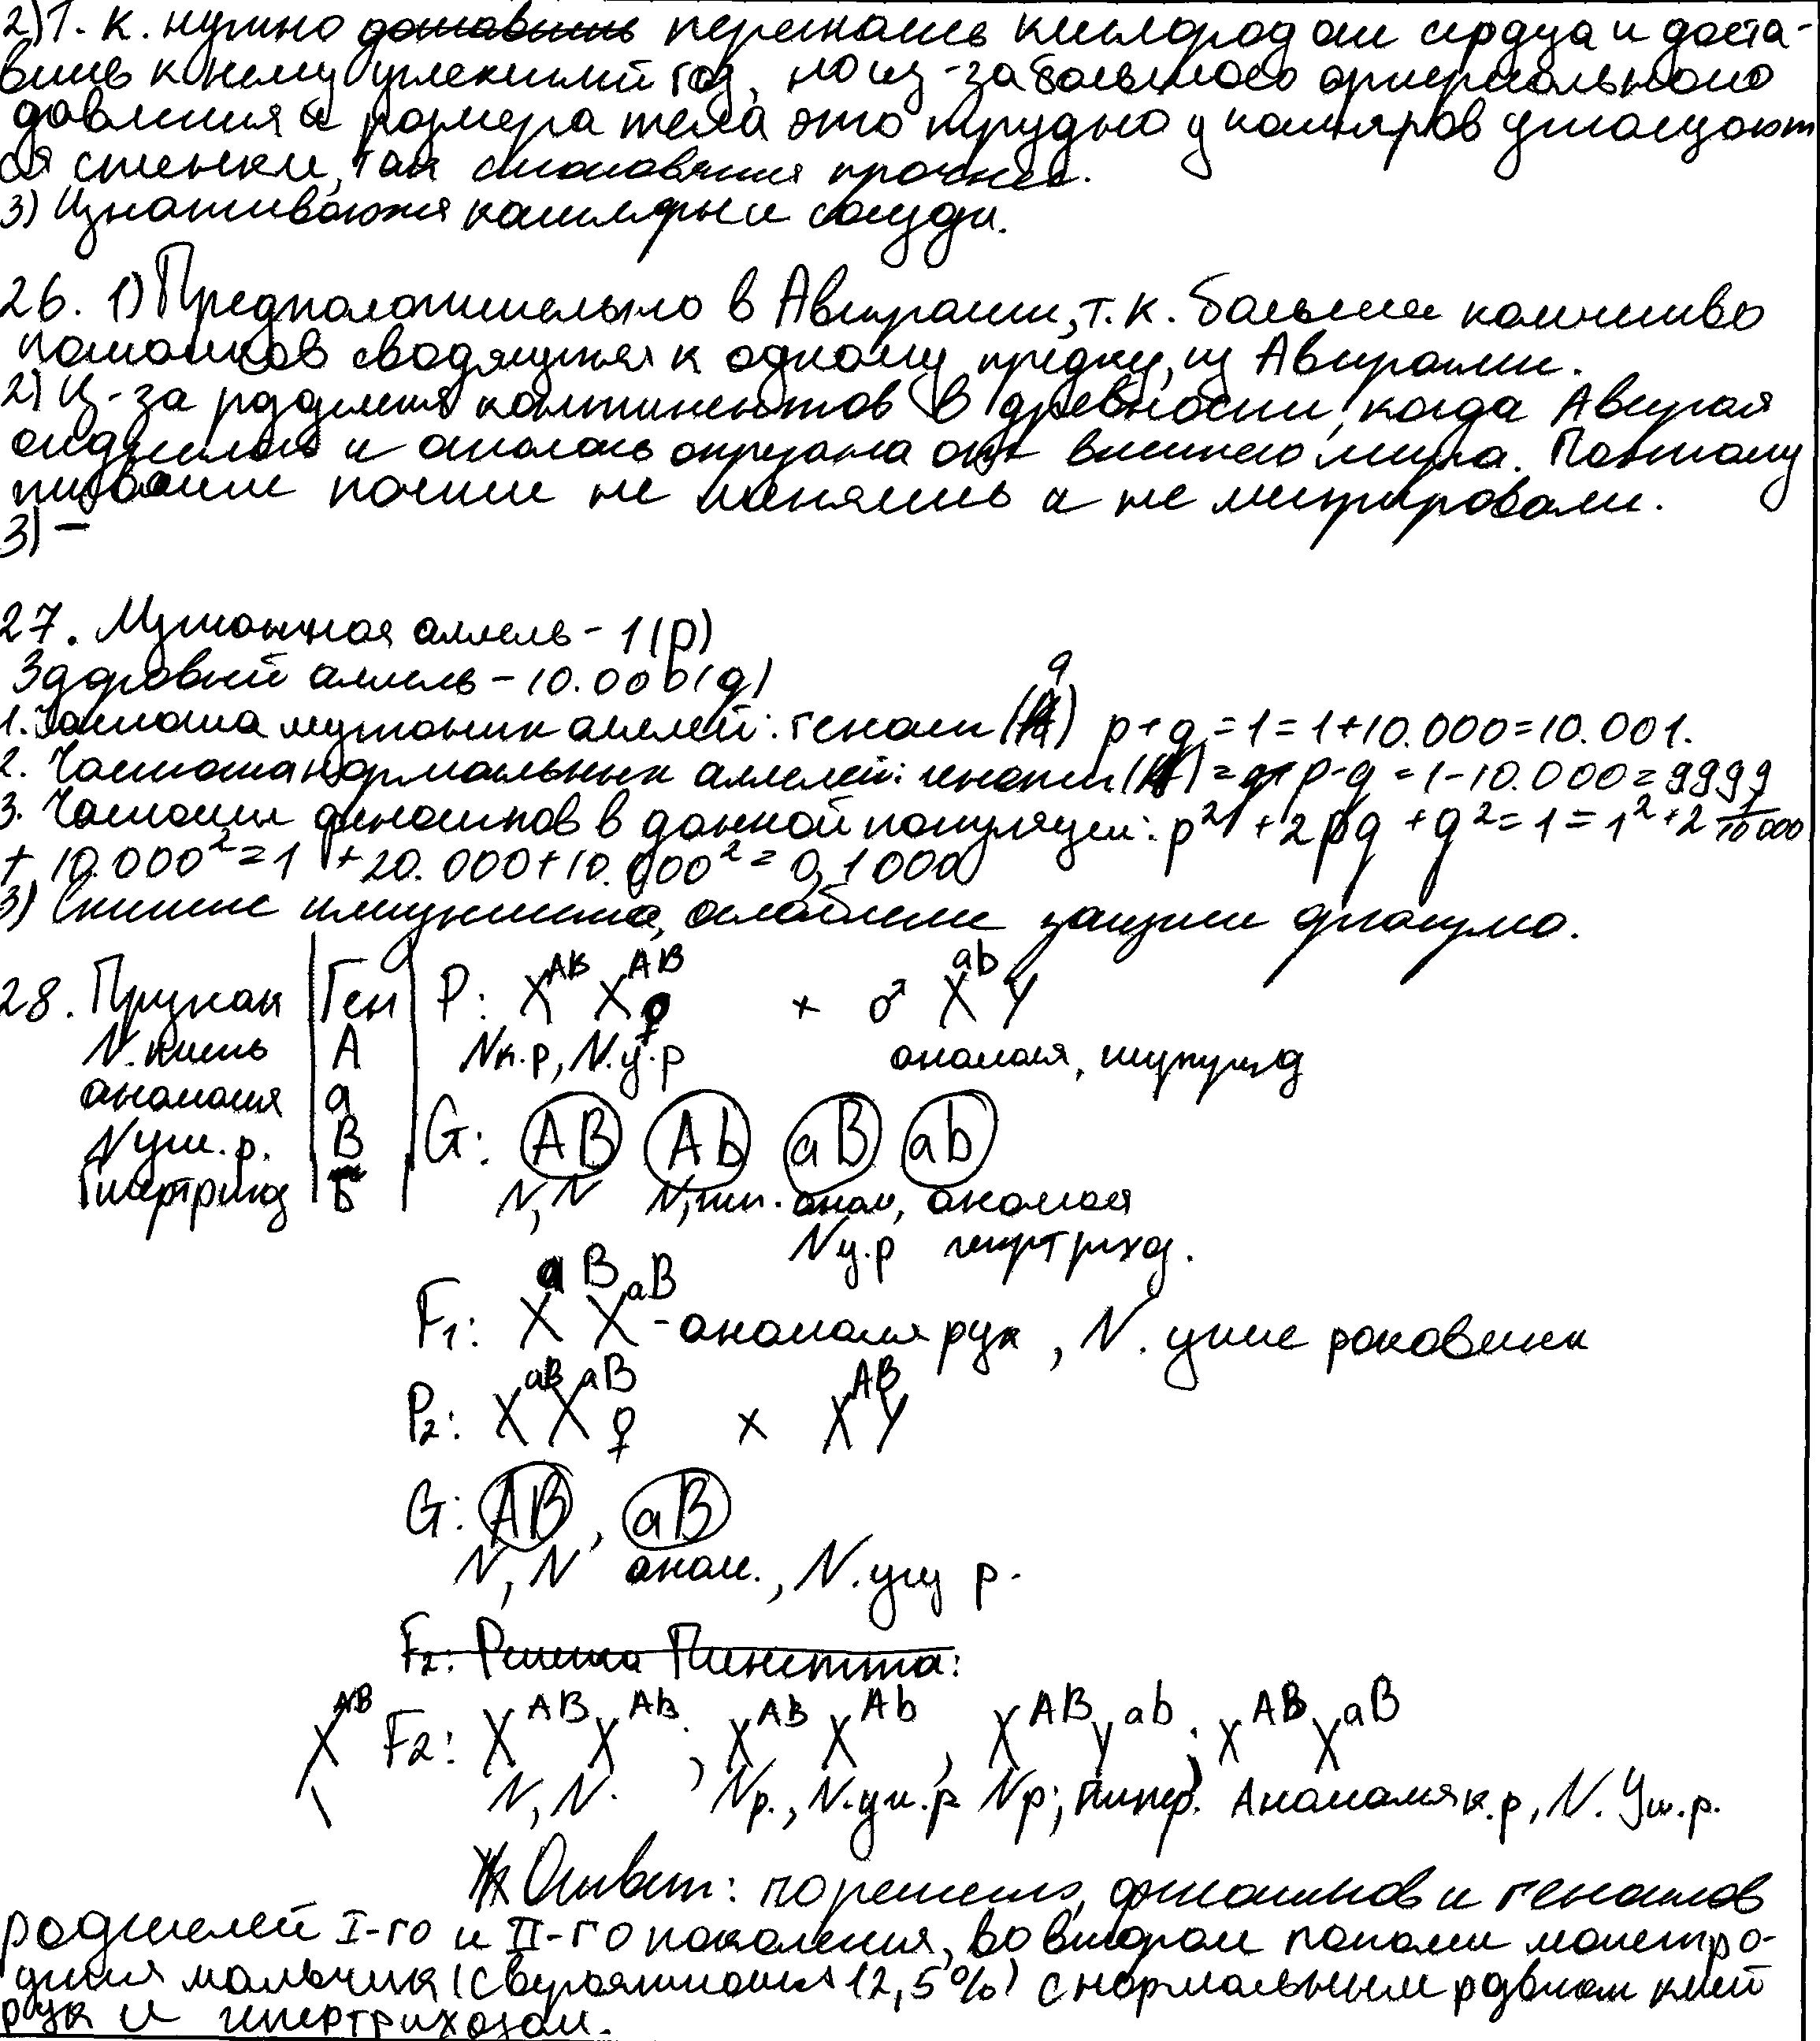 2) Т. к. нужно доставить перегнать кислород от сердца и доста-
вить к нему углекислый газ, но из-за большого артериального
давления и размера тела это трудно у капиляров утолщают
ся стенки, так становятся прочнее.
3) Изнашиваются капиляры и сосуды.
26. 1) Предположительно в Австралии, т. к. большее количество
потомков сводящихся к одному предку, из Австралии.
2) Из-за разделения континентов в древности, когда Австралия
отделилась и осталась отрезана от внешнего мира. Поэтому
почти не менялись и не мигрировали.
3) –
27. Мутантная аллель - 1 (p)
Здоровый аллель - 10.000 (q)
1. Частота мутантных аллелей: генотип ( ) p + q = 1 = 1 + 10.000 = 10.001.
2. Частота нормальных аллелей: генотип ( ) = p - q = 1 - 10.000 = 9999
3. Частоты фенотипов в данной популяции: p² + 2pq + q² = 1 = 1² + 2 1/10 000
+ 10.000² = 1 + 20.000 + 10.000² = 0,1000
3) Снижение иммунитета, ослабление защиты организма.
28. Признак | Ген | P: X^AB X^AB ♀ × ♂ X^ab Y
N. кисть | A | N к.р, N.у.р аномалия,
аномалия | a
N уш. р. | B | G: AB Ab aB ab
Гипертрихоз | b | N, N N, гип. аном, аномалия
N у.р гипертрихоз.
F1: X^aB X^aB - аномалия рук, N. ушные раковины
P2: X^aB X^aB ♀ × X^AB Y
G: AB, aB
N, N аном., N. уш р.
F2: Решетка Пеннетта:
X^AB F2: X^AB X^Ab, X^AB X^Ab, X^AB Y^ab; X^AB X^aB
N, N. Nр., N.уш.р Nр; гипер. Аномалия к.р, N. Уш.р.
Ответ: по решению, фенотипов и генотипов
родителей I-го и II-го поколения, во втором поколении может ро-
диться мальчик (с вероятностью 12,5%) с нормальным развитием кистей
рук и гипертрихозом.